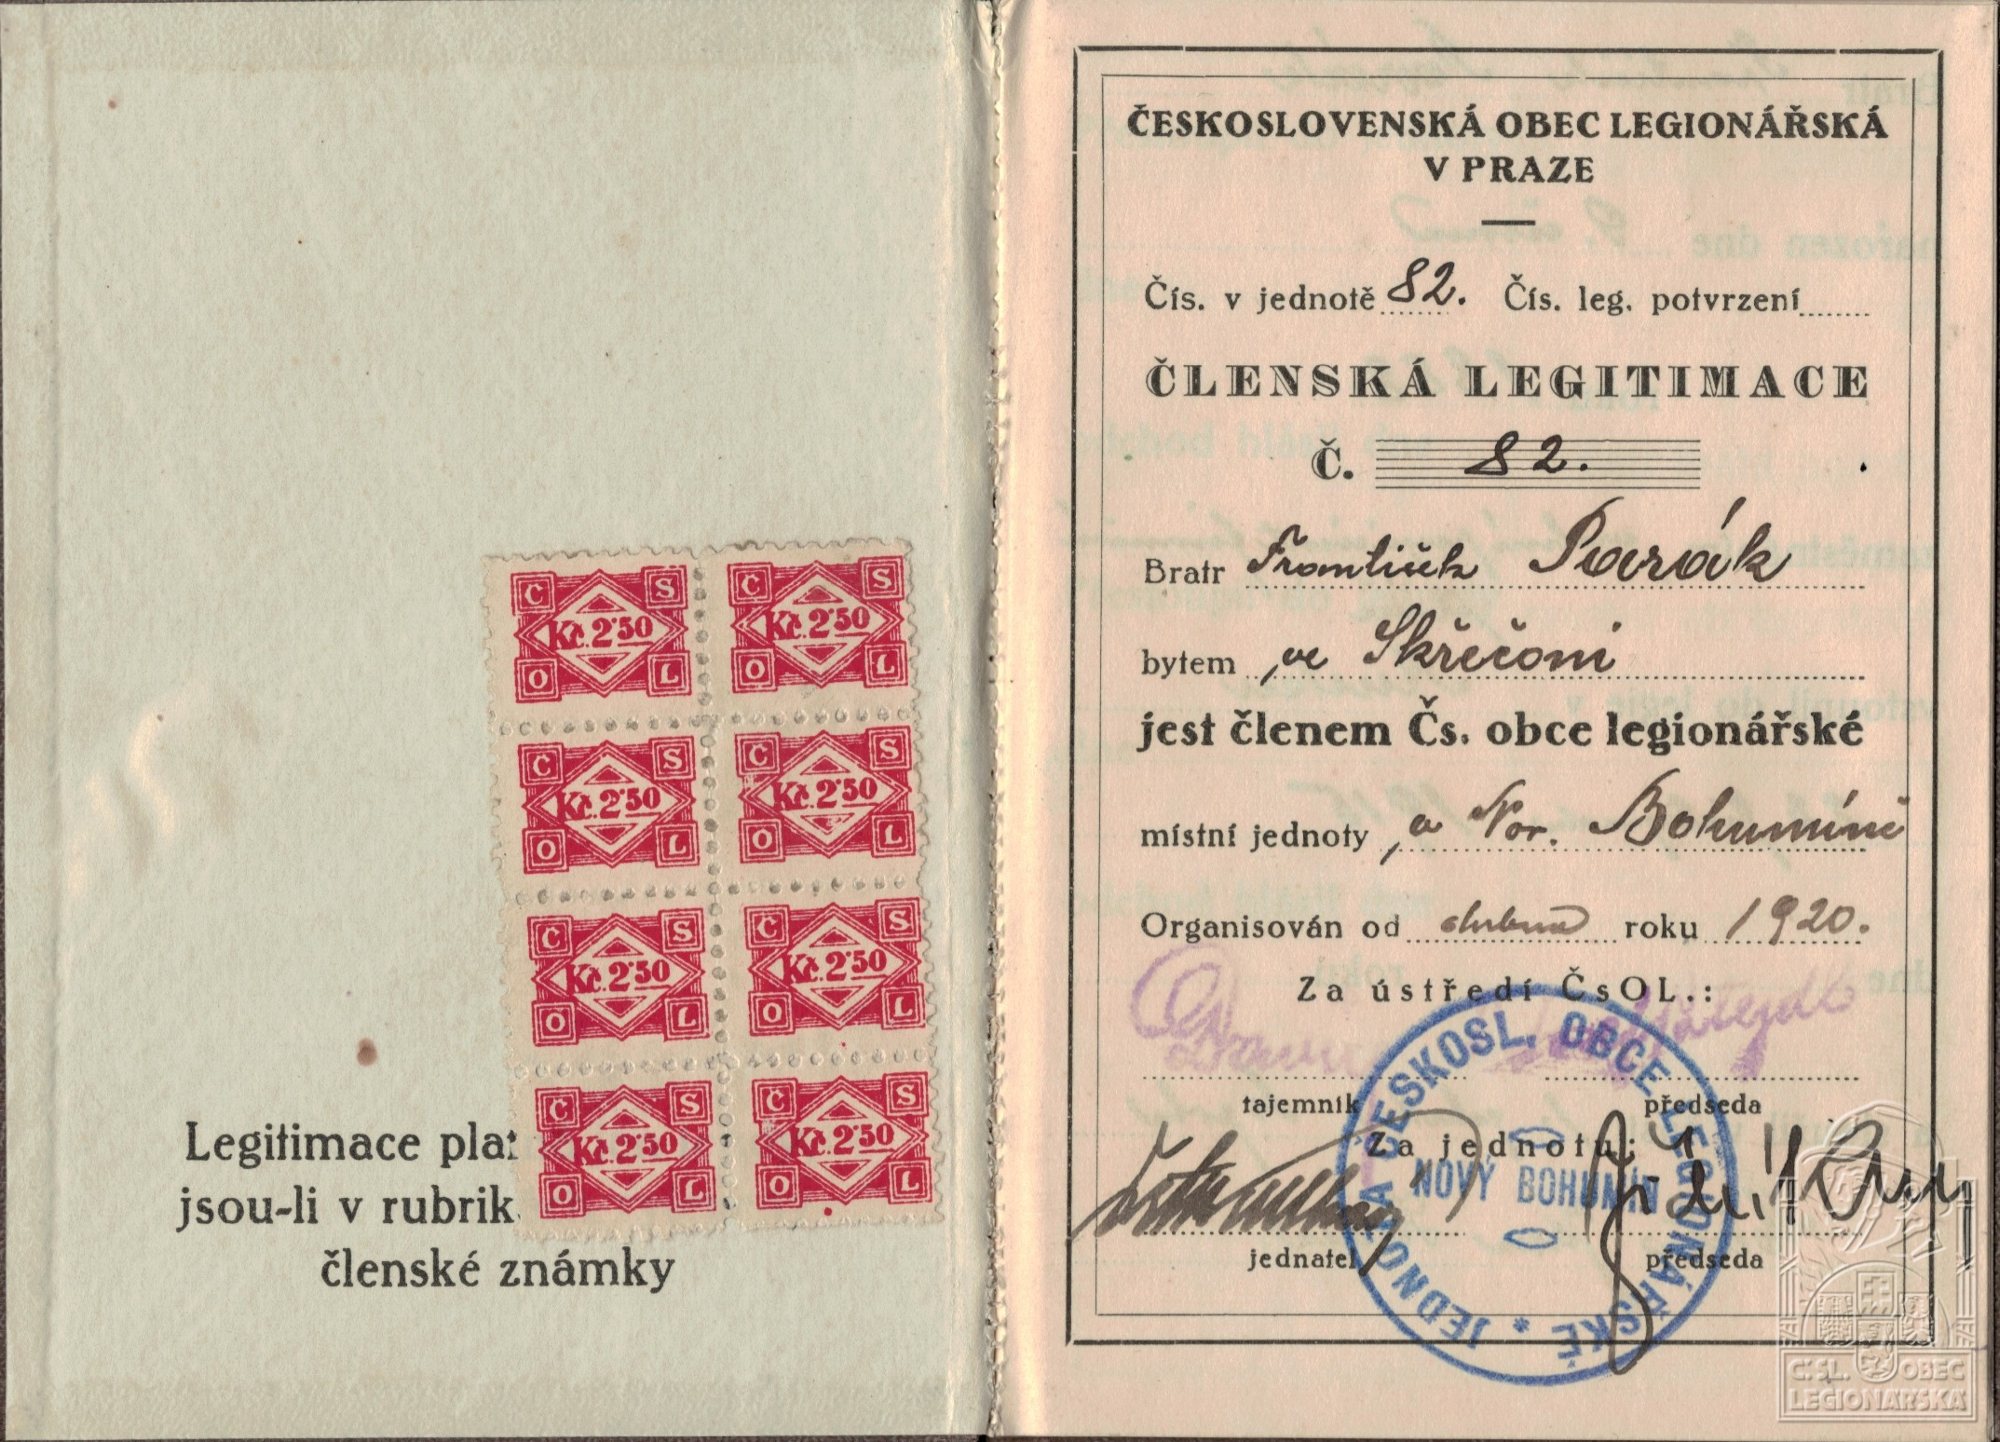 Legitimace plat
jsou-li v rubrik
členské známky
Č S
Kč. 2·50
O L
Č S
Kč. 2·50
O L
Č S
Kč. 2·50
O L
Č S
Kč. 2·50
O L
Č S
Kč. 2·50
O L
Č S
Kč. 2·50
O L
Č S
Kč. 2·50
O L
Č S
Kč. 2·50
O L
ČESKOSLOVENSKÁ OBEC LEGIONÁŘSKÁ
V PRAZE
Čís. v jednotě 82. Čís. leg. potvrzení
ČLENSKÁ LEGITIMACE
Č. 82.
Bratr František Parák
bytem ve Skřečoni
jest členem Čs. obce legionářské
místní jednoty v Nov. Bohumíně
Organisován od dubna roku 1920.
Za ústředí ČsOL.:
tajemník předseda
Za jednotu:
jednatel předseda
JEDNOTA ČESKOSL. OBCE LEGIONÁŘSKÉ *
NOVÝ BOHUMÍN
Č.SL. OBEC
LEGIONÁŘSKÁ